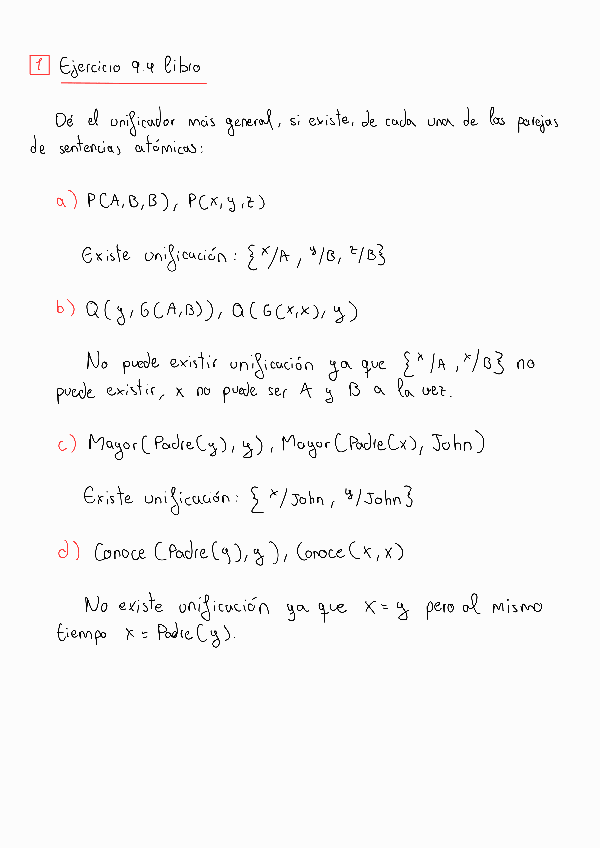 1 Ejercicio 9.4 libro
Dé el unificador más general, si existe, de cada una de las parejas
de sentencias atómicas:
a) P(A,B,B), P(x,y,z)
Existe unificación: {x/A, y/B, z/B}
b) Q(y,G(A,B)), Q(G(x,x), y)
No puede existir unificación ya que {x/A, x/B} no
puede existir, x no puede ser A y B a la vez.
c) Mayor(Padre(y), y), Mayor(Padre(x), John)
Existe unificación: {x/John, y/John}
d) Conoce (Padre(y), y), Conoce(x,x)
No existe unificación ya que x = y pero al mismo
tiempo x = Padre(y).